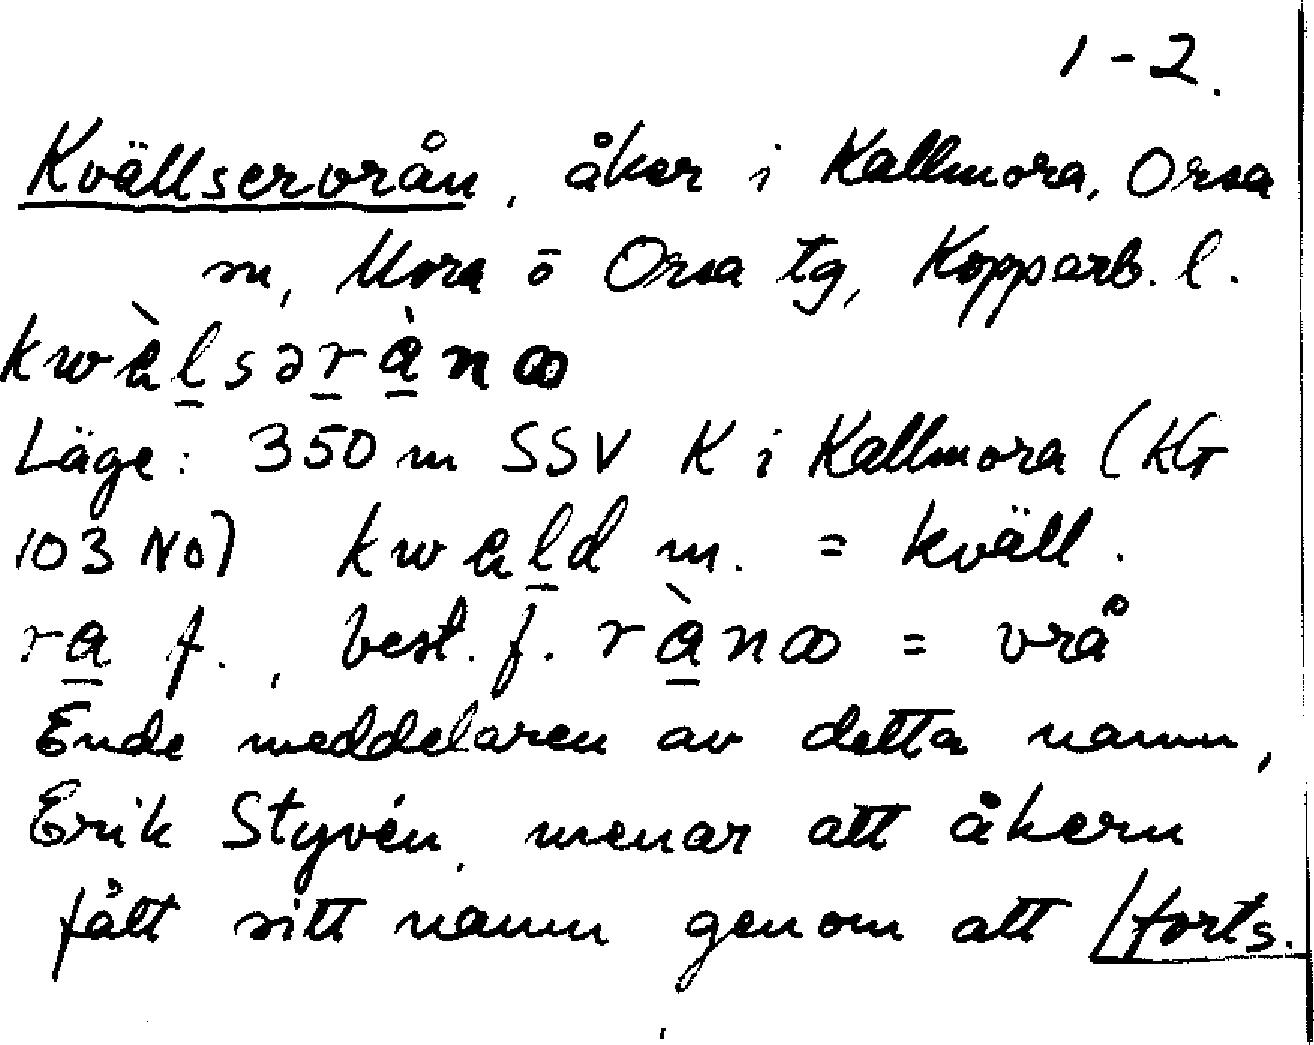 1-2.
Kvällservrån, åker i Kallmora, Orsa
sn, Mora o Orsa tg, Kopparb. l.
kwàlsəràna
Läge: 350 m SSV K i Kallmora (KG
103 NO) kwald m. = kväll.
ra f., best. f. ràna = vrå
Ende meddelaren av detta namn,
Erik Styvén, menar att åkern
fått sitt namn genom att /forts.